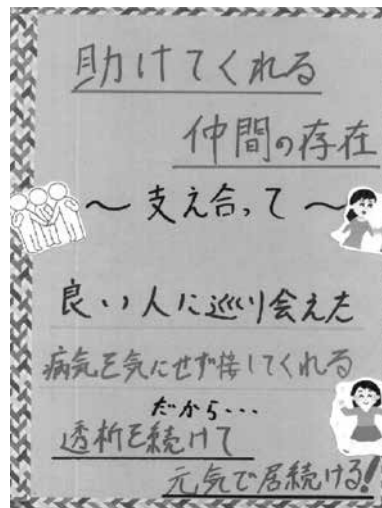 助けてくれる
仲間の存在
～支え合って～
良い人に巡り会えた
病気を気にせず接してくれる
だから…
透析を続けて
元気で居続ける!